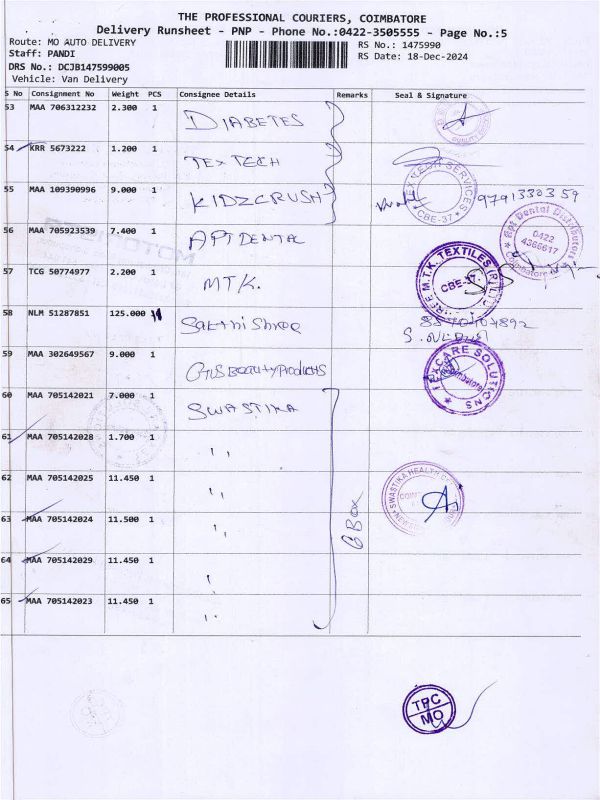 THE PROFESSIONAL COURIERS, COIMBATORE
Delivery Runsheet - PNP - Phone No.:0422-3505555 - Page No.:5
Route: MO AUTO DELIVERY
RS No.: 1475990
Staff: PANDI
RS Date: 18-Dec-2024
DRS No.: DCJB147599005
Vehicle: Van Delivery
S No Consignment No Weight PCS Consignee Details Remarks Seal & Signature
53 MAA 706312232 2.300 1 DIABETES
54 KRR 5673222 1.200 1 TEX TECH
55 MAA 109390996 9.000 1 KIDZCRUSH
TEX TECH SERVICES
CBE-37
9791330359
56 MAA 705923539 7.400 1 API DENTAL
Dental Distributors
0422
4366617
Coimbatore
57 TCG 50774977 2.200 1 MTK.
SHREE M.T.K. TEXTILES (P) LTD
CBE-37
58 NLM 51287851 125.000 Sakthi Shree
59 MAA 302649567 9.000 1 GTLS Beauty Products
CARE SOLUTIONS
Coimbatore
60 MAA 705142021 7.000 1 SWASTIKA
61 MAA 705142028 1.700 1 ''
62 MAA 705142025 11.450 1 ''
SWASTIKA HEALTH
63 MAA 705142024 11.500 1 ''
6 Box
64 MAA 705142029 11.450 1 '
65 MAA 705142023 11.450 1 ''
TPC
MO